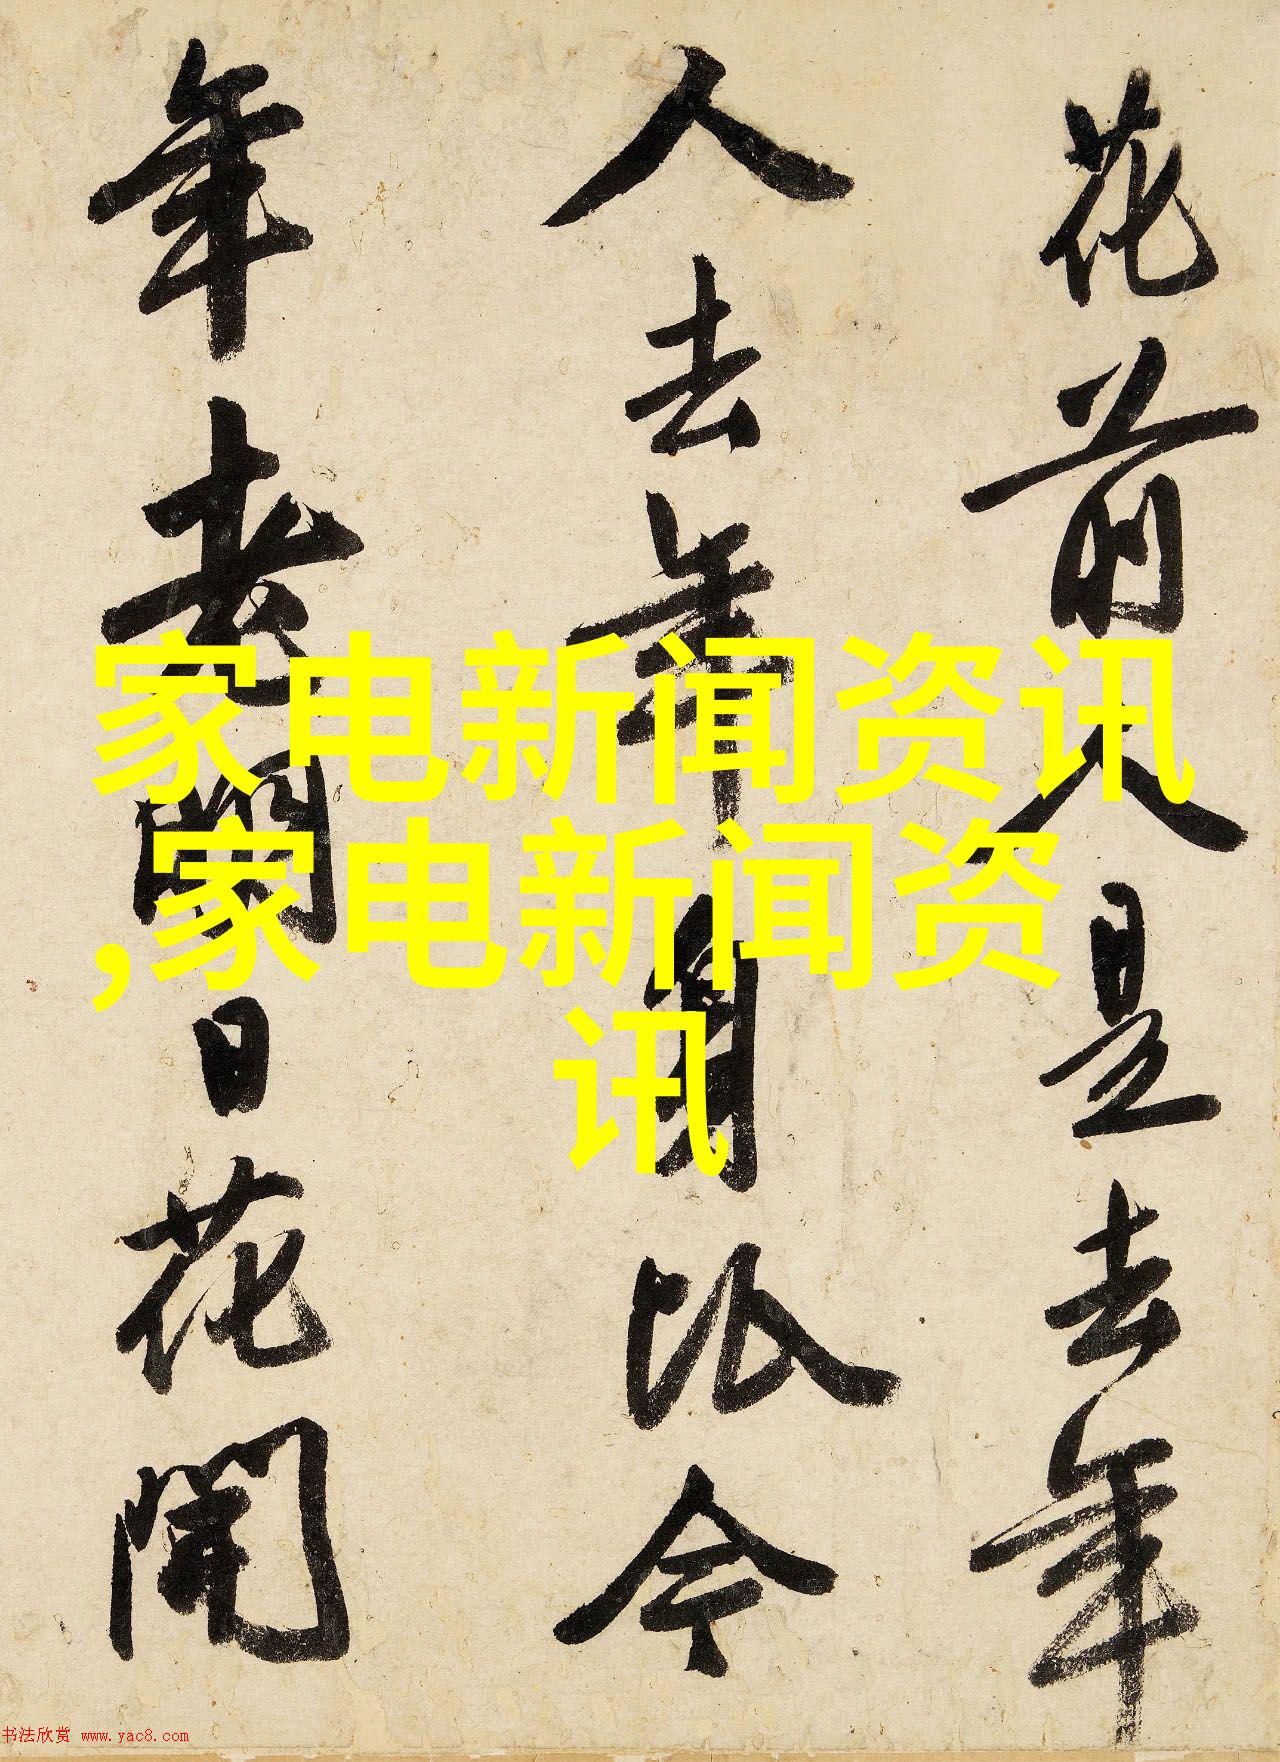 花前人是去年
人去年身比今
年老日花開
家电新闻资讯
,家电新闻资
讯
书法欣赏 www.yac8.com